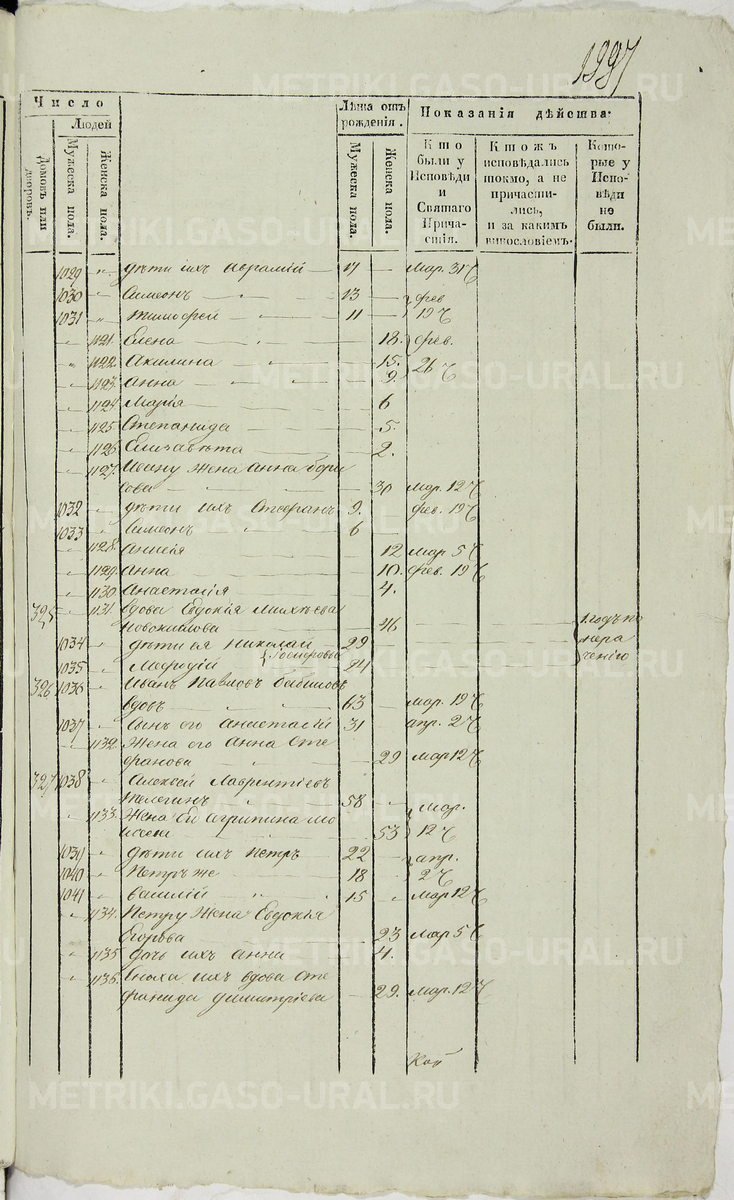 1997
Число
Людей
Домовъ или дворовъ.
Мужеска пола.
Женска пола.
Лѣта отъ рожденія.
Мужеска пола.
Женска пола.
Показанія дѣйства.
Кто были у Исповѣди и Святаго Причастія.
Ктожъ исповѣдались токмо, а не причастились, и за какимъ винословіемъ.
Которые у Исповѣди не были.
1029 " дѣти ихъ Авраамій 17 — Мар. 31
1030 " Симеонъ 13 — фев
1031 " Тимофей 11 — 19
" 1121. Елена 18. фев.
" 1122. Акилина 15. 26
" 1123. Анна 9.
" 1124. Марія 6
" 1125. Степанида 5.
" 1126. Елизавѣта 2.
" 1127. Ивану жена Анна Бори
сова 30 мар. 12
1032 " дѣти ихъ Стефанъ 9. фев. 19
1033 " Симеонъ 6 —
" 1128. Анисія 12 мар 5
" 1129. Анна 10. фев. 19
" 1130. Анастасія 4.
325 " 1131. вдова Евдокія
46 1 годъ по
1034 " дѣти ея Николай 29 нера
1035 " Мефодій 24 чению
326 1036 " Иванъ Павловъ
вдовъ 63 мар. 19
1037 " Сынъ его Анастасій 31 апр. 2
" 1132. Жена его Анна Сте
фанова 29 мар 12
327 1038 " Алексѣй Лаврентіевъ
58 мар.
" 1133. Жена его Агрипина Мо
исеева 53 12
1039 " дѣти ихъ Петръ 22 — апр.
1040 " Петръ же 18 2
1041 " Василій 15 мар 12
" 1134. Петру жена Евдокія
Егорова 23 мар 5
" 1135 дочь ихъ Анна 4.
" 1136. Сноха ихъ вдова Сте
фанида Димитріева 29. мар. 12
METRIKI.GASO-URAL.RU